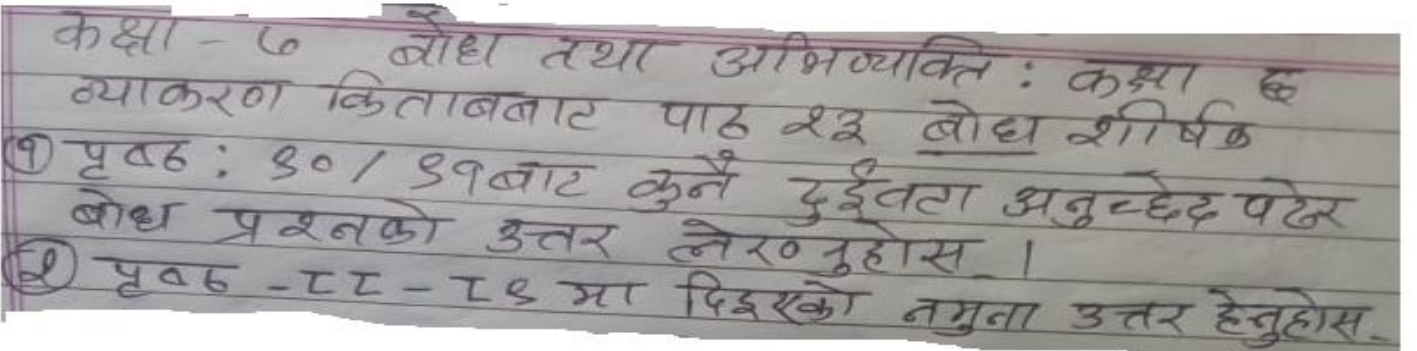 कक्षा - ७ बोध तथा अभिव्यक्ति : कक्षा ६
व्याकरण किताबबाट पाठ २३ बोध शीर्षक
(१) पृष्ठ : ९० / ९१बाट कुनै दुईवटा अनुच्छेद पढेर
बोध प्रश्नको उत्तर लेख्नुहोस ।
(२) पृष्ठ - ८८ - ८९ मा दिइएको नमुना उत्तर हेर्नुहोस